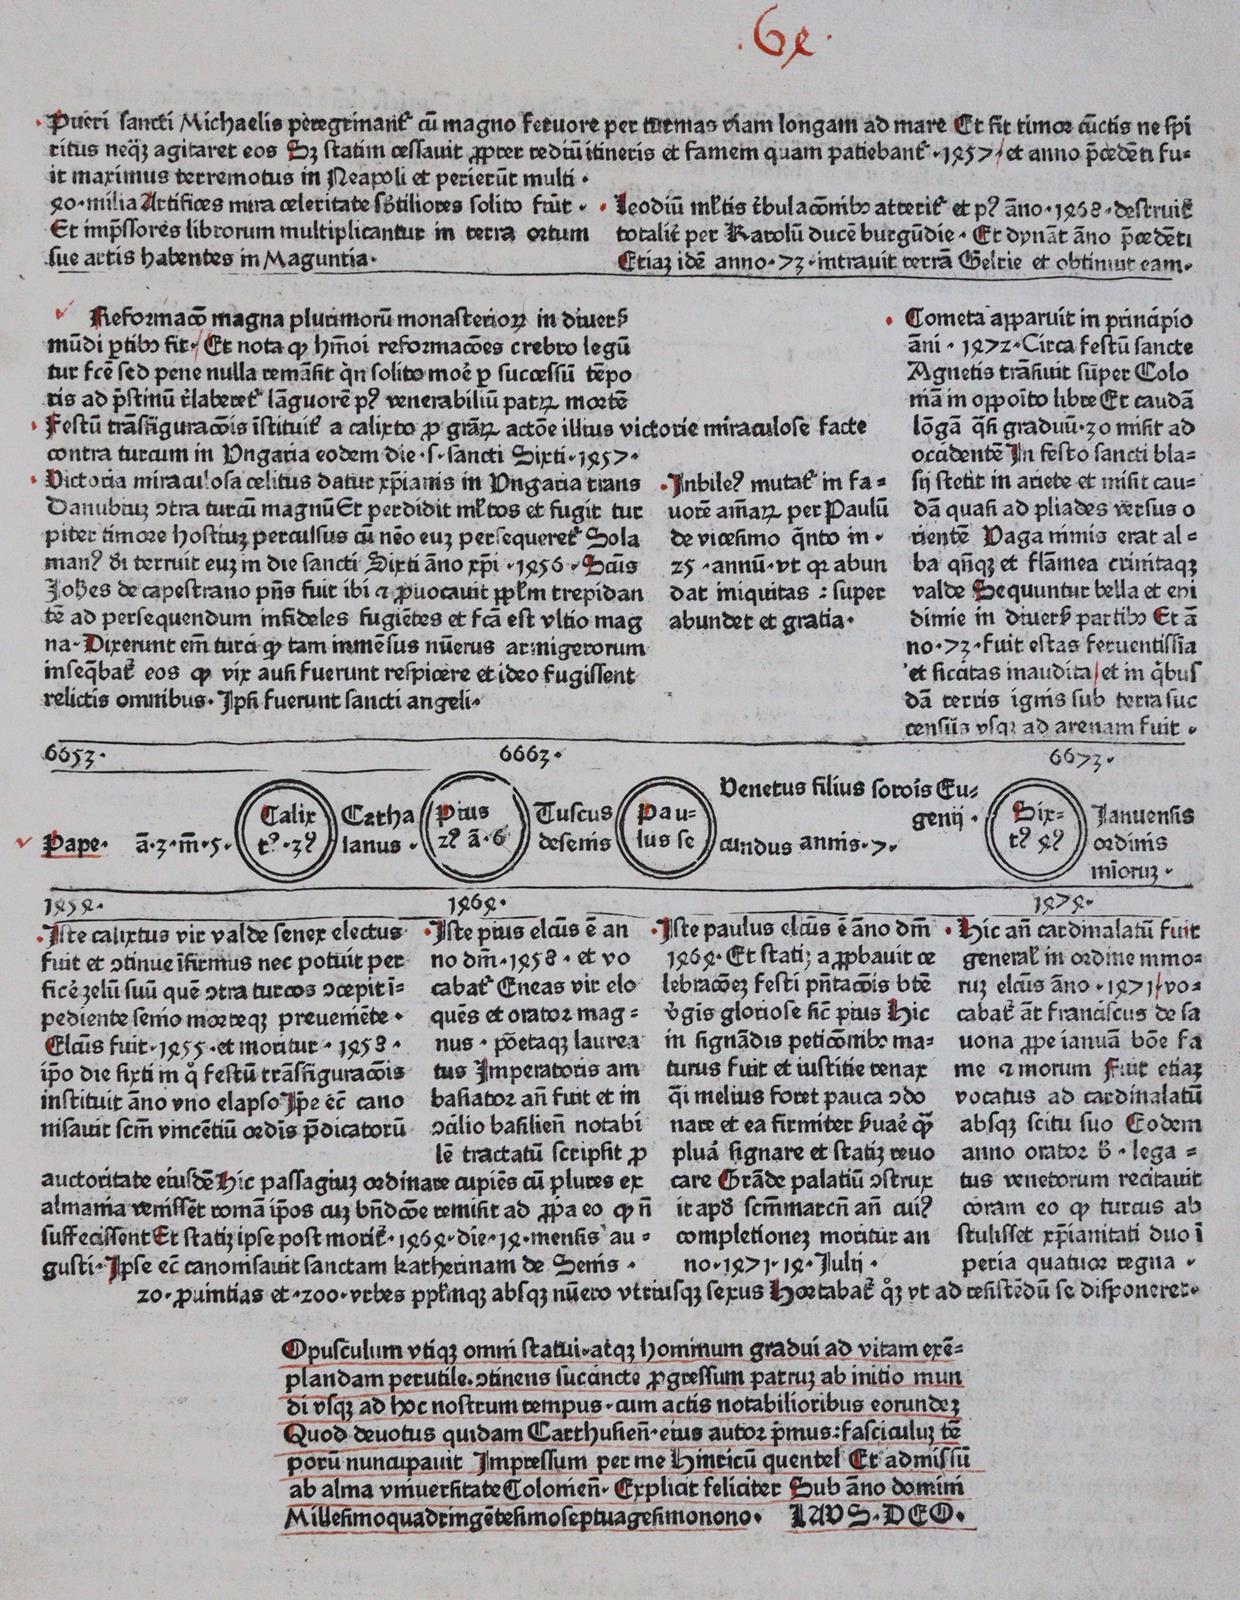 .64.
Pueri sancti Michaelis peregrinant᷑ cū magno feruore per turmas viam longam ad mare Et fit timor cūctis ne spi
ritus neq̄ꝫ agitaret eos Sꝫ statim cessauit ꝓpter rediū itineris et famem quam patiebant᷑ · 1457 / et anno p̄cedēti fu⸗
it maximus terremotus in Neapoli et perierūt multi ·
40 · milia Artifices mira celeritate sb̄tiliores solito fiūt ·
Et imp̄ssores librorum multiplicantur in terra ortum
sue artis habentes in Maguntia ·
Leodiū ml̄tis t̄bulac̄onibꝰ atterit᷑ et pꝰ āno · 1468 · destruit᷑
totalit̄ per Karolū ducē burgūdie · Et dynāt āno p̄cedēti
Etiaꝫ idē anno · 73 · intrauit terrā Gelrie et obtinuit eam ·
Reformac̄o magna plurimorū monasterioꝝ in diuers̄
mūdi ꝑtibꝰ fit · / Et nota ꝙ hm̄oi reformac̄oes crebro legū
tur fcē sed pene nulla remāsit q̇n solito moē ꝑ successū tēpo
ris ad p̄stinū r̄laberet᷑ lāguorē pꝰ venerabiliū patꝝ mortē
Festū trāsfigurac̄ois īstituit᷑ a calixto ꝓ grāꝝ actōe illius victorie miraculose facte
contra turcum in Vngaria eodem die · s · sancti Sixti · 1457 ·
Victoria miraculosa celitus datur xp̄ianis in Vngaria trans
Danubiuꝫ ɔtra turcū magnū Et perdidit ml̄tos et fugit tur
piter timore hostiuꝫ perculsus cū nēo euꝫ persequeret᷑ Sola
manꝰ di terruit euꝫ in die sancti Sixti āno xp̄i · 1456 · Scūs
Joh̄es de capestrano pn̄s fuit ibi ⁊ ꝓuocauit ppl̄m trepidan
tē ad persequendum infideles fugiētes et fcā est vltio mag
na · Dixerunt em̄ turci ꝙ tam immēsus nūerus armigerorum
inseq̄bat᷑ eos ꝙ vix ausi fuerunt respicere et ideo fugissent
relictis omnibus · Ip̄si fuerunt sancti angeli ·
Iubileꝰ mutat᷑ in fa⸗
uorē am̄aꝝ per Paulū
de vicesimo q̄nto in ·
25 · annū · vt qꝛ abun
dat iniquitas : super
abundet et gratia ·
Cometa apparuit in principio
āni · 1472 · Circa festū sancte
Agnetis trāsiuit sūper Colo
niā in oppoīto libre Et caudā
lōgā q̄si graduū · 30 misit ad
occidentē In festo sancti bla⸗
sij stetit in ariete et misit cau⸗
dā quasi ad pliades versus o
rientē Vaga nimis erat al⸗
ba qn̄qꝫ et flāmea crinitaqꝫ
valde Sequuntur bella et epi
dimie in diuers̄ partibꝰ Et ā
no · 73 · fuit estas feruentissia
et siccitas inaudita / et in q̇bus
dā terris ignis sub terra suc
census vsqꝫ ad arenam fuit ·
6653 · 6663 · 6673 ·
Pape · ā · 3 · m̄ · 5 ·
Calix
tꝰ · 3ꝰ
Catha
lanus ·
Pius
2ꝰ ā · 6
Tuscus
desenis
Pau⸗
lus se
Venetus filius sororis Eu⸗
genij ·
cundus annis · 7 ·
Six⸗
tꝰ 4ꝰ
Januensis
ordinis
mīoruꝫ ·
1454 · 1464 · 1474 ·
Iste calixtus vir valde senex electus
fuit et ɔtinue īfirmus nec potuit per
ficē zelū suū quē ɔtra turcos ɔcepit i⸗
pediente senio morteqꝫ preueniēte ·
Elcūs fuit · 1455 · et moritur · 1458 ·
ip̄o die sixti in q̊ festū trāsfigurac̄ois
instituit āno vno elapso Ip̄e ēc̄ cano
nisauit scm̄ vincētiū ordīs p̄dicatorū
Iste pius elcūs ē an
no dm̄ · 1458 · et vo
cabat᷑ Eneas vir elo
quēs et orator mag⸗
nus · pōetaqꝫ laurea
tus Imperatoris am
basiator an̄ fuit et in
ɔcilio basilien̄ notabi
lē tractatū scripsit ꝓ
auctoritate eiusdē Hic passagiuꝫ ordinare cupiēs cū plures ex
almania venissēt romā ip̄os cuꝫ bn̄dc̄oe remisit ad ꝓp̄a eo ꝙ n̄
suffecissent Et statiꝫ ipse post morit᷑ · 1464 · die · 14 · mensis au⸗
gusti · Ipse ēc̄ canonisauit sanctam katherinam de Senis ·
Iste paulus elcūs ē āno dm̄
1464 · Et statiꝫ aꝓpbauit ce
lebrac̄oeꝫ festi pn̄tac̄ois btē
v̇gis gloriose sic̄ pius Hic
in signādis petic̄onibꝰ ma⸗
turus fuit et iustitie tenax
q̇i melius foret pauca ɔdo
nare et ea firmiter ẜuaē ꝙ̄
pluā signare et statiꝫ reuo
care Grāde palatiū ɔstrux
it apd̄ scm̄marcū an̄ cuiꝰ
completioneꝫ moritur an
no · 1471 · 14 · Julij ·
Hic an̄ cardinalatū fuit
general᷑ in ordine mino⸗
ruꝫ elcūs āno · 1471 / vo⸗
cabat᷑ āt franciscus de sa
uona ꝓpe ianuā bōe fa
me ⁊ morum Fuit etiaꝫ
vocatus ad cardinalatū
absqꝫ scitu suo Eodem
anno orator v̄ · lega⸗
tus venetorum recitauit
coram eo ꝙ turcus ab
stulisset xp̄ianitati duo ī
peria quatuor regna ·
20 · ꝓuintias et · 200 · vrbes ppl̄inqꝫ absqꝫ nūero vtriusqꝫ sexus Hortabat᷑ q̊ꝫ vt ad resistēdū se disponeret ·
Opusculum vtiqꝫ omni statui · atqꝫ hominum gradui ad vitam exē⸗
plandam perutile · ɔtinens succincte ꝓgressum patruꝫ ab initio mun
di vsqꝫ ad hoc nostrum tempus · cum actis notabilioribus eorundeꝫ
Quod deuotus quidam Carthusien̄ · eius autor p̄mus : fasciculuꝫ tē
porū nuncupauit Impressum per me Hinricū quentel Et admissū
ab alma vniuersitate Colonien̄ · Explicit feliciter Sub āno domini
Millesimoquadringētesimoseptuagesimonono · LAVS · DEO ·